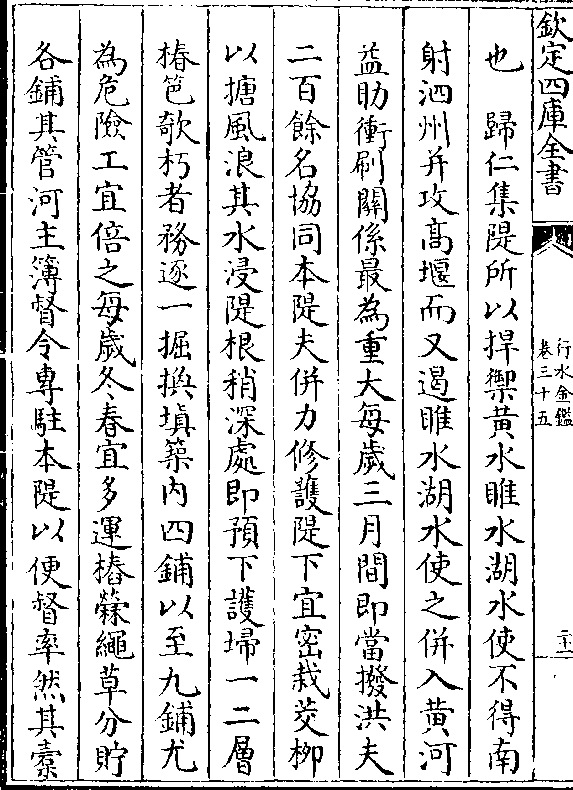 欽定四庫全書
行水金鑑
卷三十五
二十一
也　歸仁集隄所以捍禦黃水睢水湖水使不得南
射泗州并攻髙堰而又遏睢水湖水使之併入黄河
益助衝刷關係最為重大每歲三月間即當撥洪夫
二百餘名協同本隄夫併力修護隄下宜密栽茭栁
以搪風浪其水浸隄根稍深處即預下護埽一二層
樁笆欹朽者務逐一掘換填築内四鋪以至九鋪尤
為危險工宜倍之每歲冬春宜多運樁䕠繩草分貯
各鋪其管河主簿督令專駐本隄以便督率然其槖